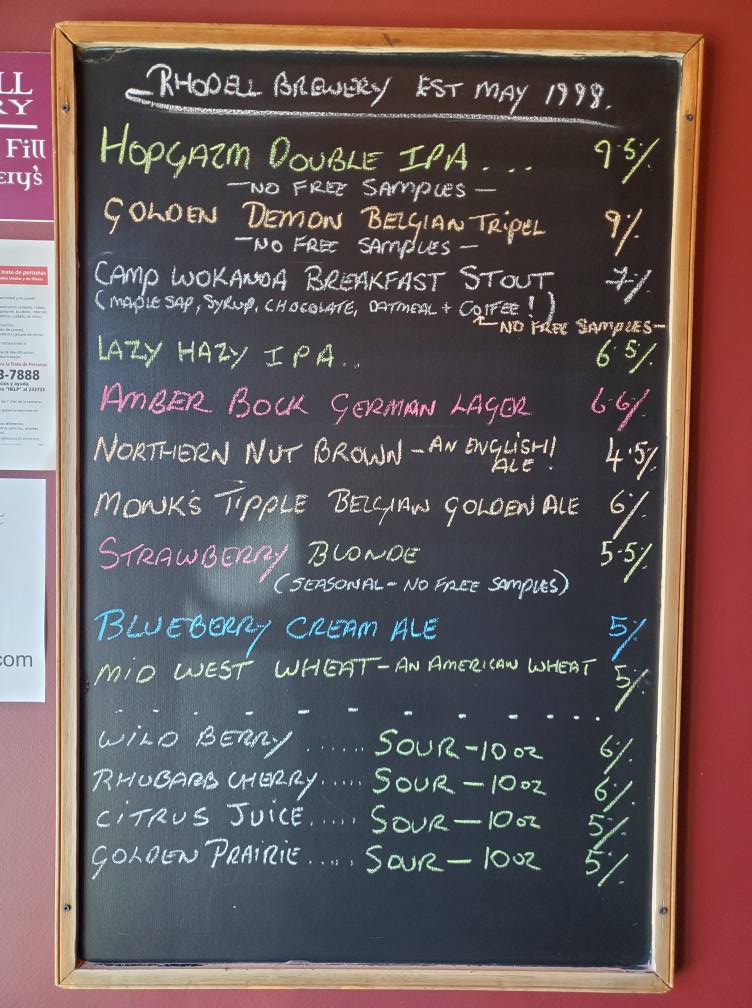 RHODELL BREWERY EST MAY 1998.
HOPGAZM DOUBLE IPA... 9.5%
—NO FREE SAMPLES—
GOLDEN DEMON BELGIAN TRIPEL 9%
—NO FREE SAMPLES—
CAMP WOKANDA BREAKFAST STOUT 7%
(MAPLE SAP, SYRUP, CHOCOLATE, OATMEAL + COFFEE!)
NO FREE SAMPLES—
LAZY HAZY IPA.. 6.5%
AMBER BOCK GERMAN LAGER 6.6%
NORTHERN NUT BROWN - AN ENGLISH! ALE! 4.5%
MONK'S TIPPLE BELGIAN GOLDEN ALE 6%
STRAWBERRY BLONDE 5.5%
(SEASONAL - NO FREE SAMPLES)
BLUEBERRY CREAM ALE 5%
MID WEST WHEAT - AN AMERICAN WHEAT 5%
WILD BERRY ...... SOUR - 10 oz 6%
RHUBARB CHERRY ..... SOUR - 10 oz 6%
CITRUS JUICE ..... SOUR - 10 oz 5%
GOLDEN PRAIRIE ..... SOUR - 10 oz 5%
LL
RY
Fill
ery's
trata de personas
3-7888
com